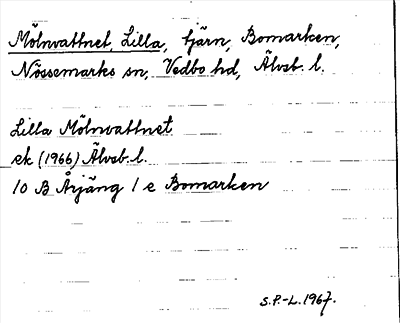 Mölnvattnet, Lilla, tjärn, Bomarken,
Nössemarks sn, Vedbo hd, Älvsb. l.
Lilla Mölnvattnet
ek (1966) Älvsb. l.
10 B Årjäng 1 e Bomarken
S.P.-L. 1967.